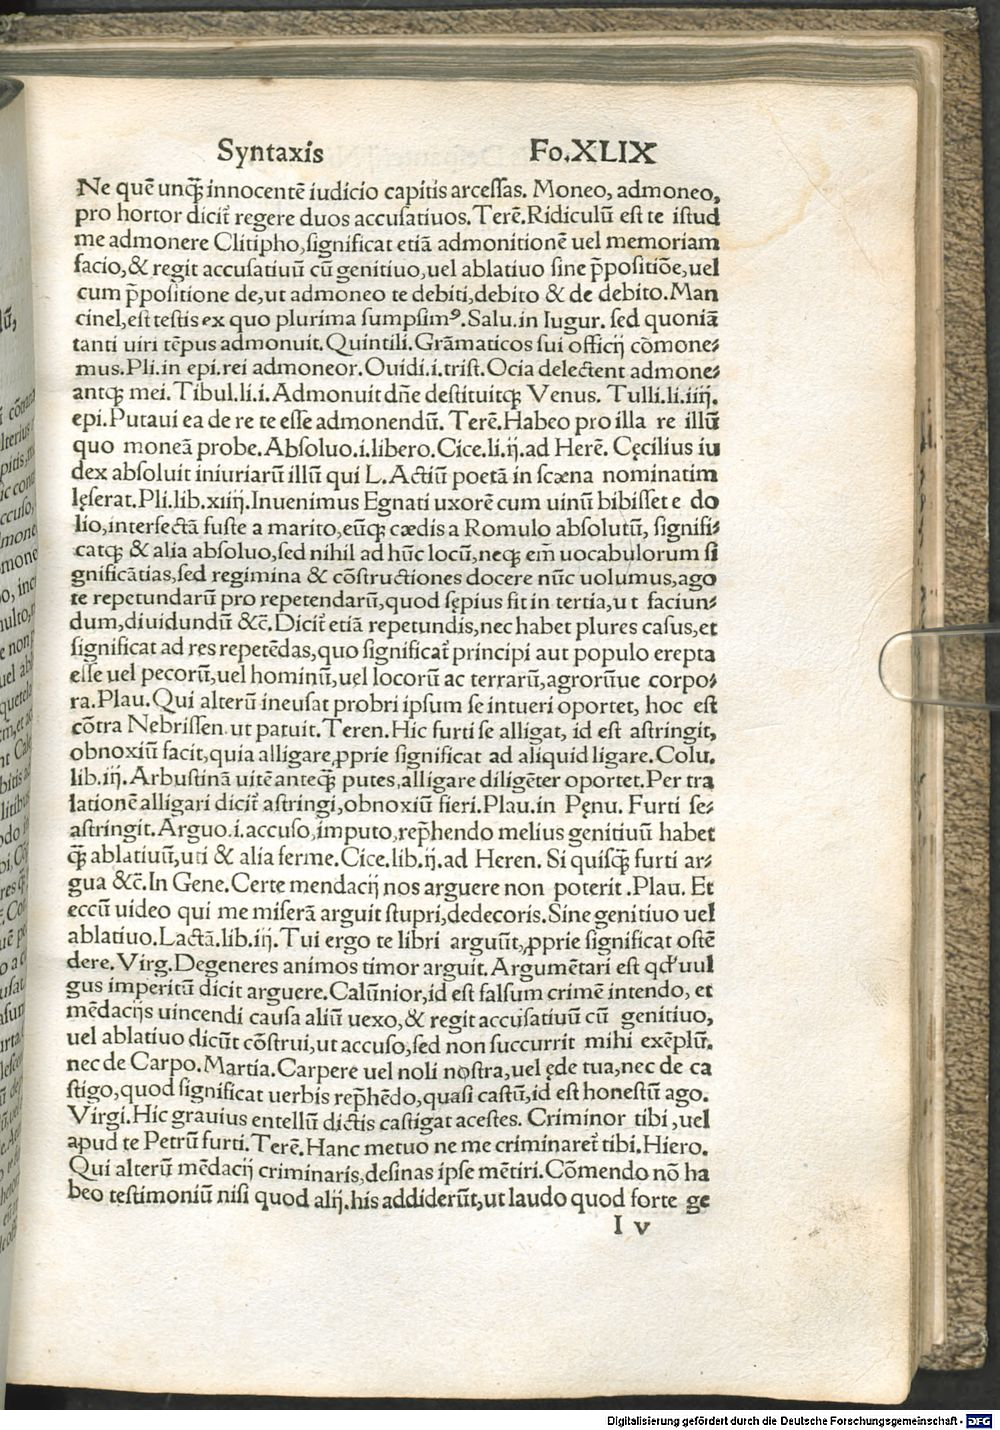 Syntaxis Fo.XLIX
Ne quē unꝗ̄ innocentē iudicio capitis arcessas. Moneo, admoneo,
pro hortor dicit᷑ regere duos accusatiuos. Terē. Ridiculū est te istud
me admonere Clitipho, significat etiā admonitionē uel memoriam
facio, & regit accusatiuū cū genitiuo, uel ablatiuo sine p̄positiōe, uel
cum p̄positione de, ut admoneo te debiti, debito & de debito. Man
cinel, est testis ex quo plurima sumpsimꝰ. Salu. in Iugur. sed quoniā
tanti uiri tēpus admonuit. Quintili. Grāmaticos sui officij cōmone⸗
mus. Pli. in epi. rei admoneor. Ouidi. i. trist. Ocia delectent admone⸗
antqꝫ mei. Tibul. li. i. Admonuit dn̄e destituitqꝫ Venus. Tulli. li. iiij.
epi. Putaui ea de re te esse admonendū. Terē. Habeo pro illa re illū
quo moneā probe. Absoluo .i. libero. Cice. li. ij. ad Herē. Cęcilius iu
dex absoluit iniuriarū illū qui L. Actiū poetā in scæna nominatim
lęserat. Pli. lib. xiiij. Inuenimus Egnati uxorē cum uinū bibisset e do
lio, interfectā fuste a marito, eūqꝫ cædis a Romulo absolutū, signifi⸗
catqꝫ & alia absoluo, sed nihil ad hūc locū, neqꝫ em̄ uocabulorum si
gnificātias, sed regimina & cōstructiones docere nūc uolumus, ago
te repetundarū pro repetendarū, quod sępius fit in tertia, ut faciun⸗
dum, diuidundū &c̄. Dicit᷑ etiā repetundis, nec habet plures casus, et
significat ad res repetēdas, quo significat᷑ principi aut populo erepta
esse uel pecorū, uel hominū, uel locorū ac terrarū, agrorūue corpo⸗
ra. Plau. Qui alterū incusat probri ipsum se intueri oportet, hoc est
cōtra Nebrissen. ut patuit. Teren. Hic furti se alligat, id est astringit,
obnoxiū facit, quia alligare ꝓprie significat ad aliquid ligare. Colu.
lib. iij. Arbustinā uitē anteꝗ̄ putes, alligare diligēter oportet. Per tra
lationē alligari dicit᷑ astringi, obnoxiū fieri. Plau. in Pęnu. Furti se⸗
astringit. Arguo .i. accuso, imputo, rep̄hendo melius genitiuū habet
ꝗ̄ ablatiuū, uti & alia ferme. Cice. lib. ij. ad Heren. Si quisꝗ̄ furti ar⸗
gua &c̄. In Gene. Certe mendacij nos arguere non poterit. Plau. Et
eccū uideo qui me miserā arguit stupri, dedecoris. Sine genitiuo uel
ablatiuo. Lactā. lib. iij. Tui ergo te libri arguūt, ꝓprie significat ostē
dere. Virg. Degeneres animos timor arguit. Argumētari est qđ uul
gus imperitū dicit arguere. Calūnior, id est falsum crimē intendo, et
mēdacijs uincendi causa aliū uexo, & regit accusatiuū cū genitiuo,
uel ablatiuo dicūt cōstrui, ut accuso, sed non succurrit mihi exēplū.
nec de Carpo. Martia. Carpere uel noli nostra, uel ęde tua, nec de ca
stigo, quod significat uerbis rep̄hēdo, quasi castū, id est honestū ago.
Virgi. Hic grauius entellū dictis castigat acestes. Criminor tibi, uel
apud te Petrū furti. Terē. Hanc metuo ne me criminaret᷑ tibi. Hiero.
Qui alterū mēdacij criminaris, desinas ipse mētiri. Cōmendo nō ha
beo testimoniū nisi quod alij. his addiderūt, ut laudo quod forte ge
I v
Digitalisierung gefördert durch die Deutsche Forschungsgemeinschaft - DFG